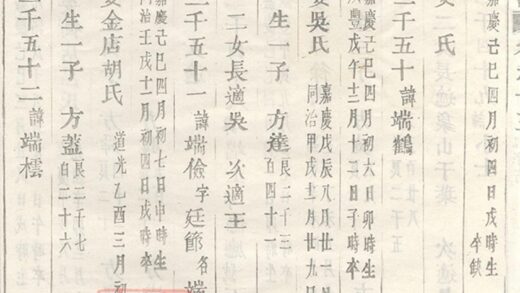 嘉慶己巳四月初四日戌時生
卒缺
娶二氏
二千五十諱端鶴
嘉慶己巳四月初六日卯時生
咸豐戊午十二月十二日子時卒
娶吳氏
嘉慶戊辰八月廿
同治甲戌十二月廿九日
生一子 方達
艮二千三
百四十一
二女長適吳 次適王
二千五十一諱端儉字廷節各端
嘉慶己巳四月初七日申時生
同治壬戌十一月初四日戌時卒
娶金店胡氏
道光乙酉三月初
生一子 方蓋
艮二千七
百二十六
二千五十二諱端櫺